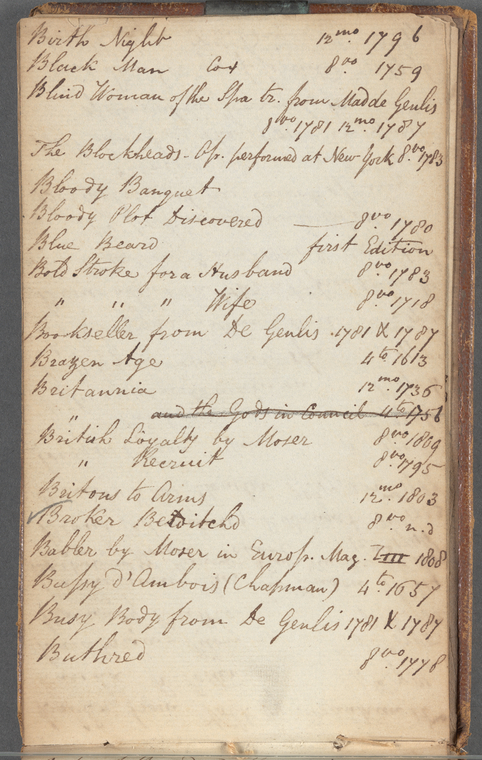 Birth Night 12mo 1796
Black Man Cox 8vo 1759
Blind Woman of the Spa tr. from Madde Genlis
8vo 1781 12mo 1787
The Blockheads - Op. performed at New York 8vo 1783
Bloody Banquet
Bloody Plot Discovered — 8vo 1780
Blue Beard first Edition
Bold Stroke for a Husband 8vo 1783
" " " Wife 8vo 1718
Bookseller from De Genlis 1781 & 1787
Brazen Age 4to 1613
Britannia 12mo 1736
" and the Gods in Council 4to 1756
British Loyalty by Moser 8vo 1809
" Recruit 8vo 1795
Britons to Arms 12mo 1803
Broker Bewitchd 8vo n.d
Babler by Moser in Europ. Mag. LIII 1808
Bussy d'Ambois (Chapman) 4to 1657
Busy Body from De Genlis 1781 & 1787
Buthred 8vo 1778